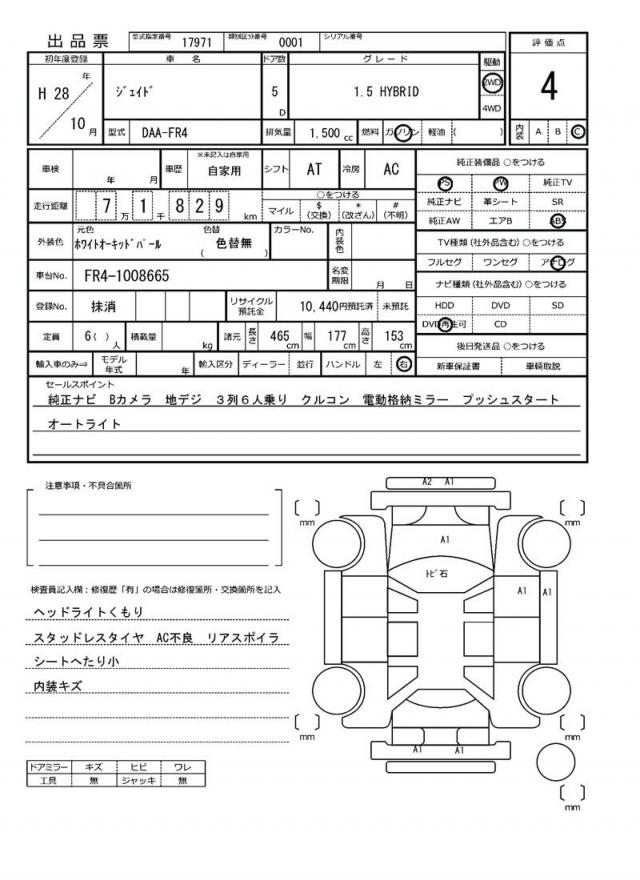 出品票 型式指定番号 17971 類別区分番号 0001 シリアル番号
初年度登録 車名 ドア数 グレード 駆動 評価点
H 28 年 10 月 ジェイド 5 D 1.5 HYBRID 2WD 4WD 4
型式 DAA-FR4 排気量 1.500 cc 燃料 ガソリン 軽油 ( ) 内装 A B C
車検 年 月 車歴 ※未記入は自家用 自家用 シフト AT 冷房 AC
純正装備品 ○をつける
PS PW 純正TV
純正ナビ 革シート SR
純正AW エアB ABS
走行距離 7 万 1 千 8 2 9 km ○をつける
マイル $ (交換) * (改ざん) # (不明)
TV種類 (社外品含む) ○をつける
フルセグ ワンセグ アナログ
外装色 元色 ホワイトオーキッドパール 色替 ( 色替無 ) カラーNo. 内装色
車台No. FR4-1008665 名変期限 月 日
ナビ種類 (社外品含む) ○をつける
HDD DVD SD
DVD再生可 CD
登録No. 抹消 リサイクル預託金 10,440円預託済 未預託
定員 6( ) 人 積載量 kg 諸元 長さ 465 cm 幅 177 cm 高さ 153 cm
後日発送品 ○をつける
新車保証書 車輌取説
輸入車のみ⇒ モデル年式 年 輸入区分 ディーラー 並行 ハンドル 左 右
セールスポイント
純正ナビ Bカメラ 地デジ 3列6人乗り クルコン 電動格納ミラー プッシュスタート
オートライト
注意事項・不具合箇所
検査員記入欄:修復歴「有」の場合は修復箇所・交換箇所を記入
ヘッドライトくもり
スタッドレスタイヤ AC不良 リアスポイラ
シートへたり小
内装キズ
ドアミラー キズ ヒビ ワレ
工具 無 ジャッキ 無
A2 A1
[ ] mm [ ] mm
A1
トビ石
A1 A1
[ ] mm [ ] mm
A1 A1
[ ] mm